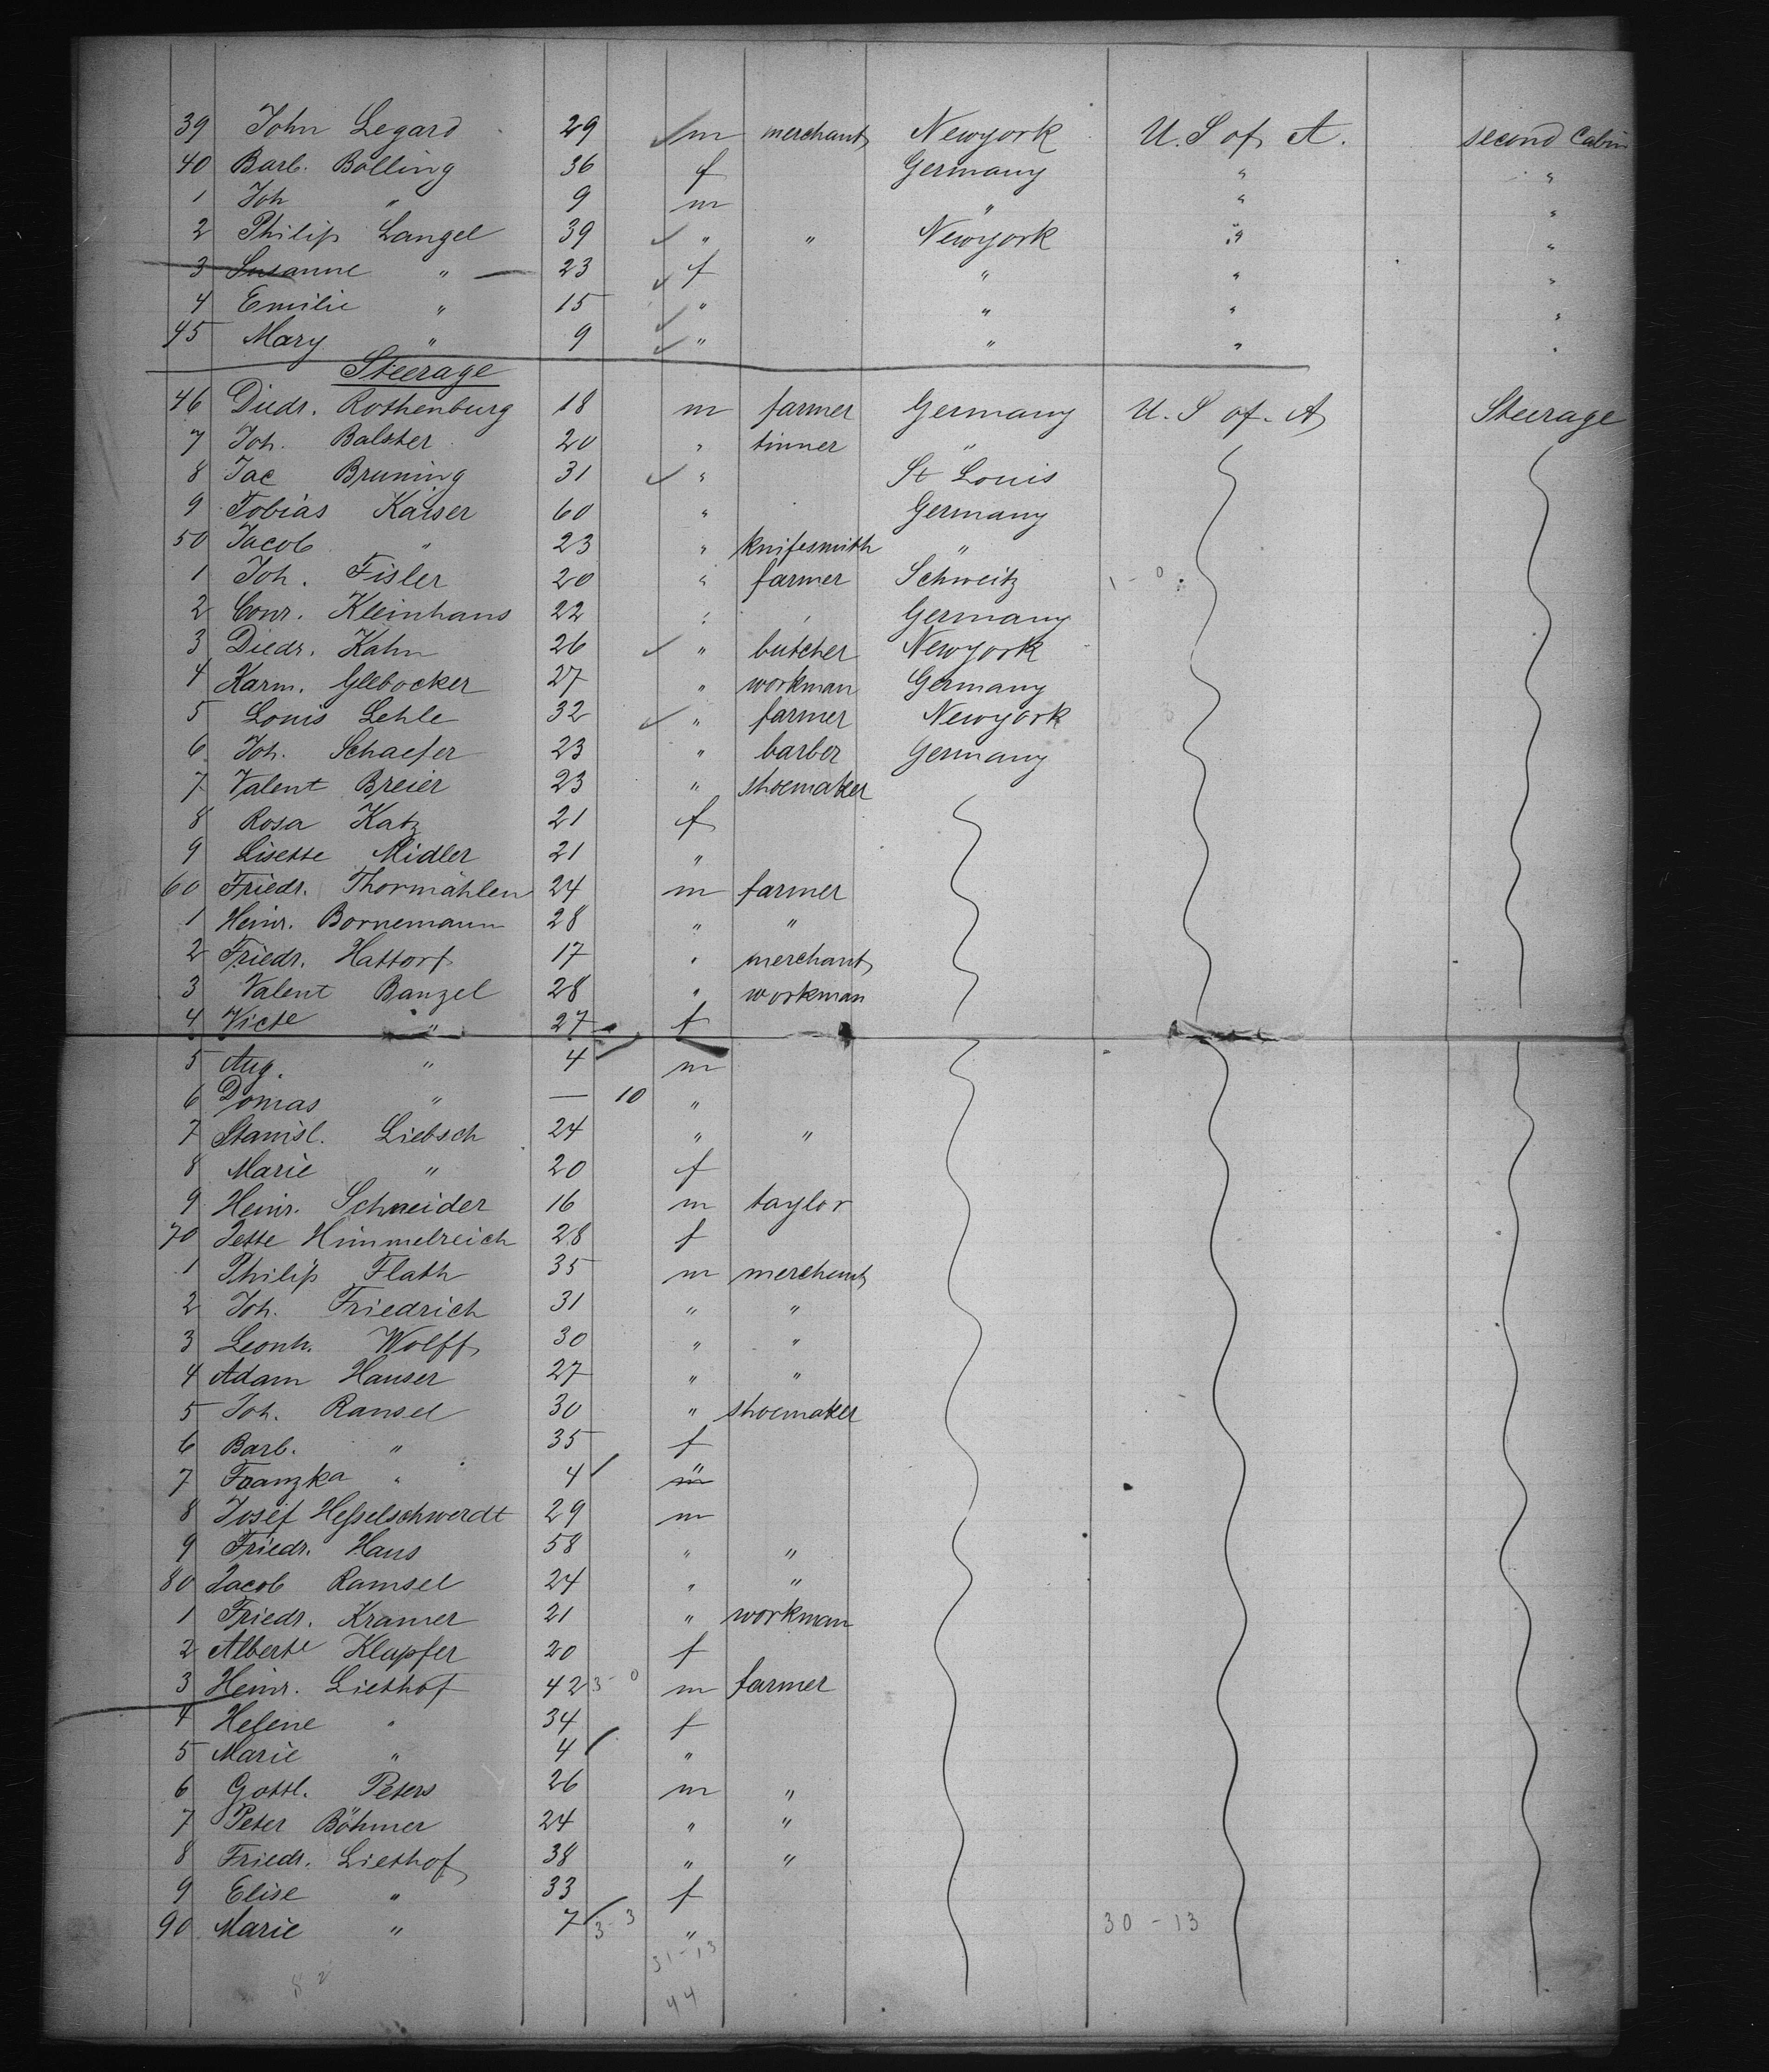 39 John Legard 29 m merchant Newyork U. S of A. second Cabin
40 Barb. Bolling 36 f Germany " "
1 Joh " 9 m " " "
2 Philip Langel 39 " " Newyork " "
3 Susanne " 23 f " " "
4 Emilie " 15 " " " "
45 Mary " 9 " " " "
Steerage
46 Diedr. Rothenburg 18 m farmer Germany U. S of. A Steerage
7 Joh. Balster 20 " tinner "
8 Jac Bruning 31 " St Louis
9 Tobias Kaiser 60 " Germany
50 Jacob " 23 " knifesmith "
1 Joh. Fisler 20 " farmer Schweitz 1 - 0
2 Conr. Kleinhans 22 " " Germany
3 Diedr. Kahn 26 " butcher Newyork
4 Karm. Glebocker 27 " workman Germany
5 Louis Lehle 32 " farmer Newyork
6 Joh. Schaefer 23 " barber Germany
7 Valent Breier 23 " shoemaker
8 Rosa Katz 21 f
9 Lisette Midler 21 "
60 Friedr. Thormählen 24 m farmer
1 Heinr. Bornemann 28 " "
2 Friedr. Hattorf 17 " merchant
3 Valent Banzel 28 " workman
4 Victe " 27 f
5 Aug. " 4 m
6 Domas " — 10 "
7 Stanisl. Liebsch 24 " "
8 Marie " 20 f
9 Heinr. Schneider 16 m taylor
70 Jette Himmelreich 28 f
1 Philip Flath 35 m merchant
2 Joh. Friedrich 31 " "
3 Leonh. Wolff 30 " "
4 Adam Hauser 27 " "
5 Joh. Ransel 30 " shoemaker
6 Barb. " 35 f
7 Franzka " 4 "
8 Josef Heßelschwerdt 29 m
9 Friedr. Haus 58 " "
80 Jacob Ramsel 24 " "
1 Friedr. Kramer 21 " workman
2 Alberte Klapfer 20 f
3 Heinr. Liethof 42 3-0 m farmer
4 Helene " 34 f
5 Marie " 4 "
6 Gottl. Peters 26 m "
7 Peter Böhmer 24 " "
8 Friedr. Liethof 38 " "
9 Elise " 33 f
90 Marie " 7 3-3 " 30 - 13
31-13
82 44